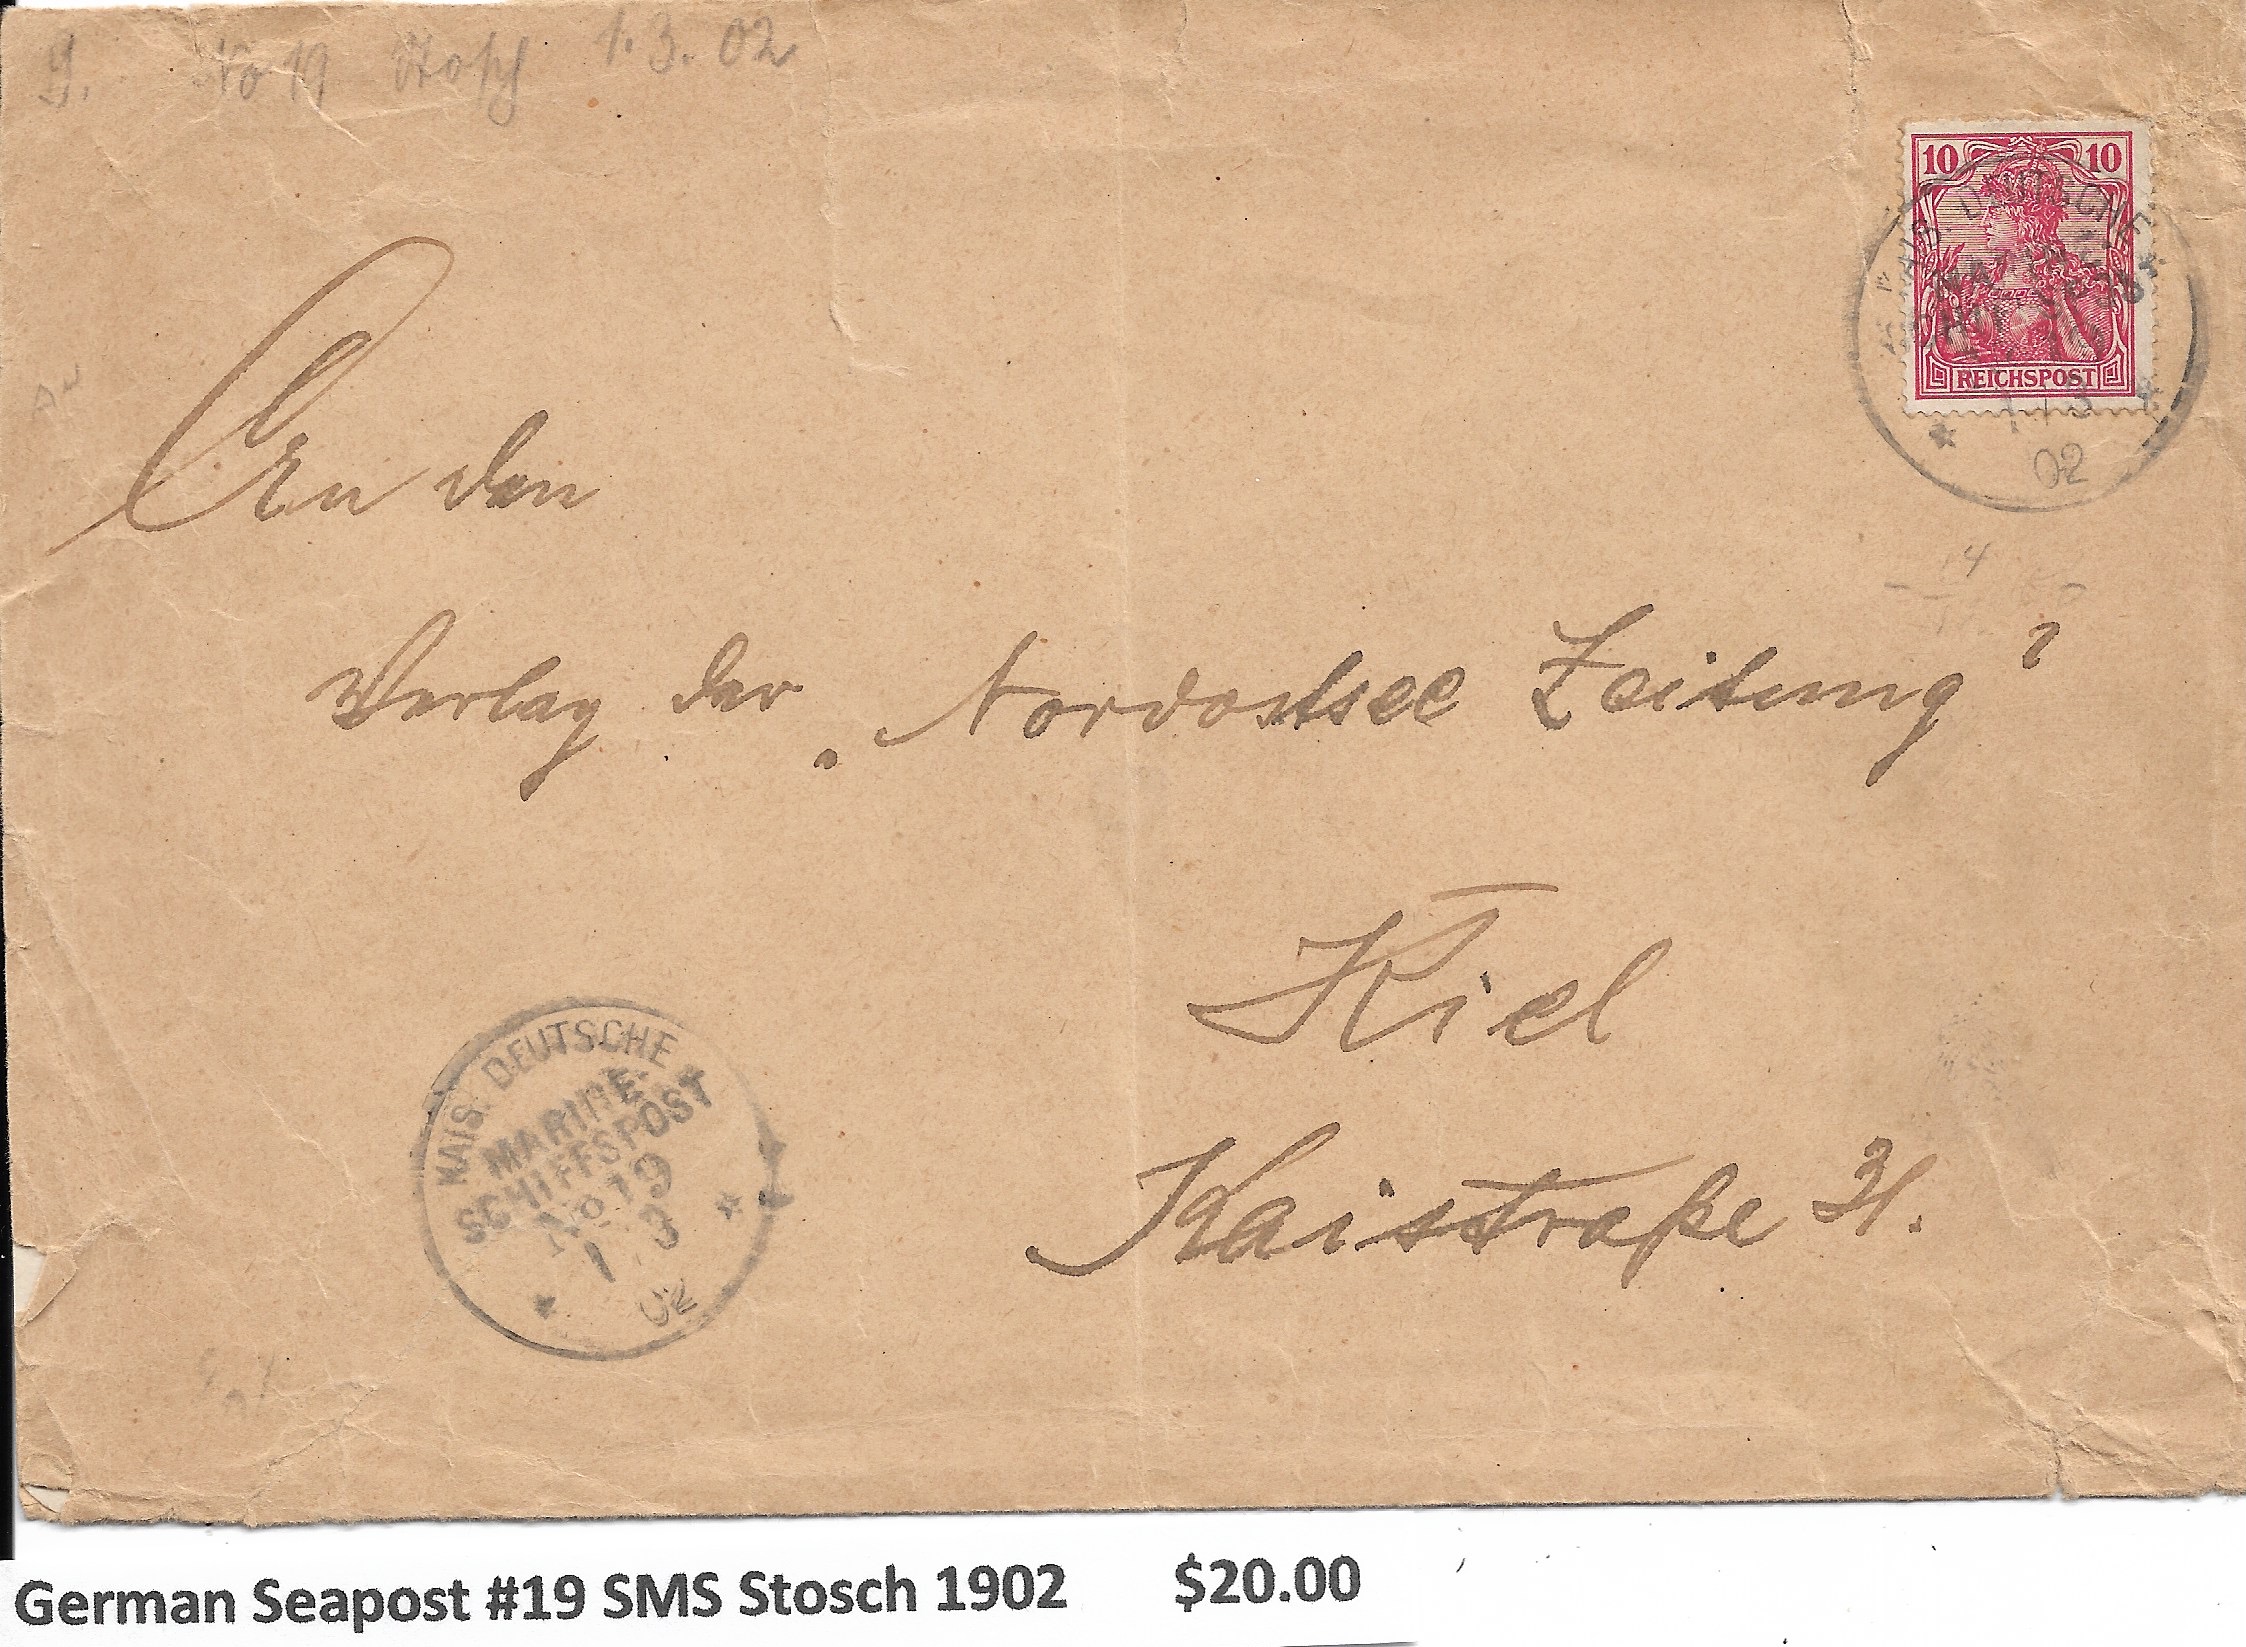 9. No 19 Stosch 1.3.02
10 10
REICHSPOST
KAIS. DEUTSCHE
MARINE-
1 3
02
14
An den
Verlag der „Nordostsee Zeitung"
Kiel
Kaistraße 31.
KAIS. DEUTSCHE
MARINE-
SCHIFFSPOST
No 19
1 3
02
German Seapost #19 SMS Stosch 1902 $20.00